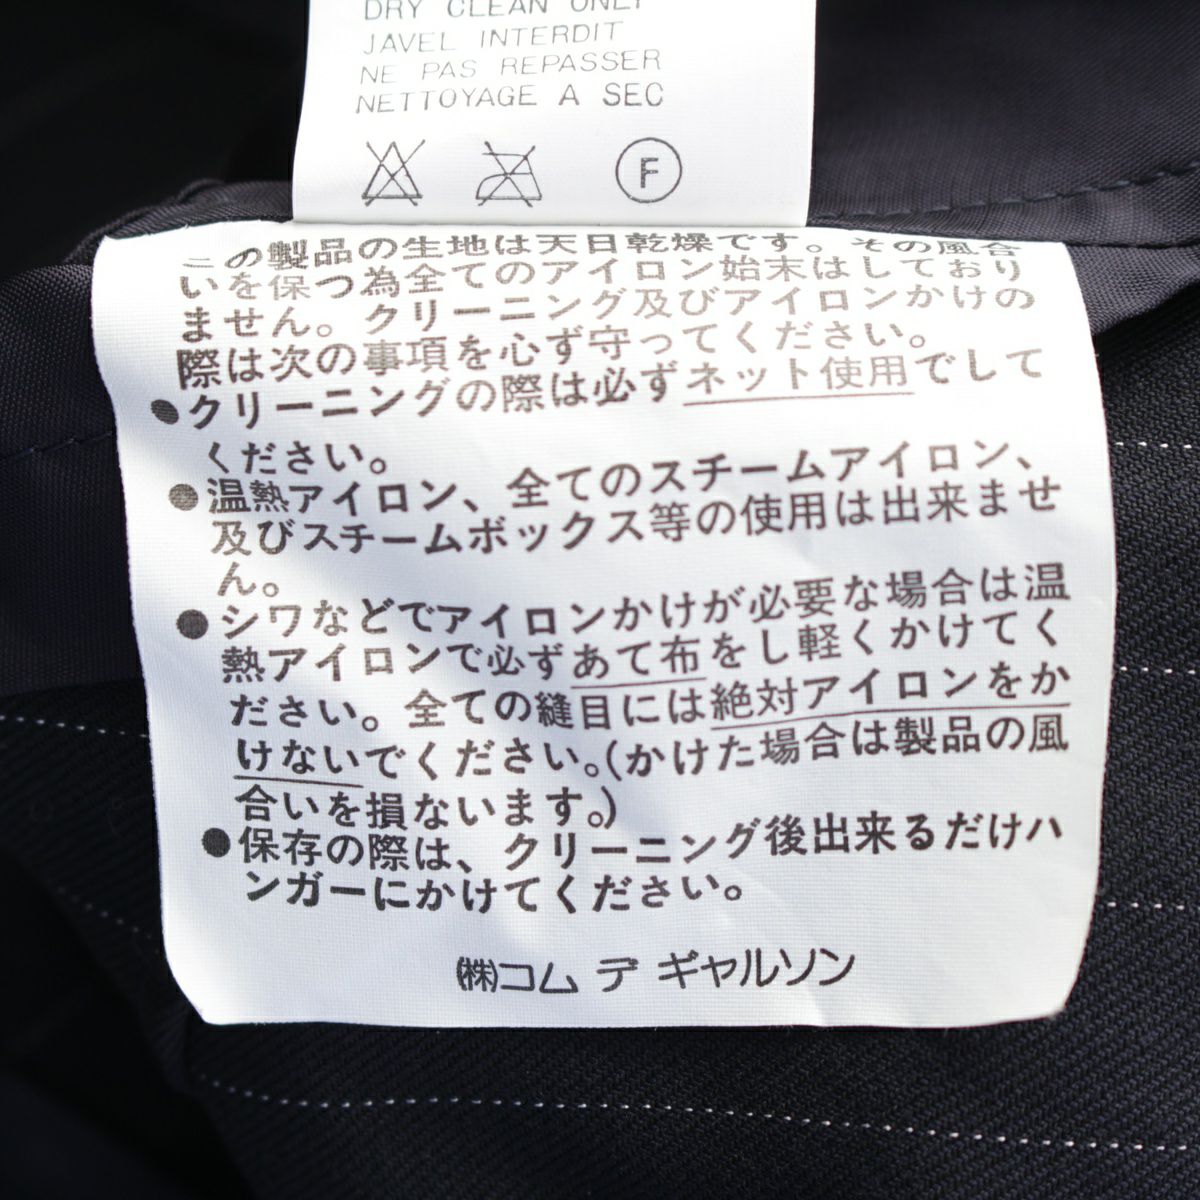 DRY CLEAN ONLY
JAVEL INTERDIT
NE PAS REPASSER
NETTOYAGE A SEC
F
この製品の生地は天日乾燥です。その風合
いを保つ為全てのアイロン始末はしており
ません。クリーニング及びアイロンかけの
際は次の事項を必ず守ってください。
●クリーニングの際は必ずネット使用でして
ください。
●温熱アイロン、全てのスチームアイロン、
及びスチームボックス等の使用は出来ませ
ん。
●シワなどでアイロンかけが必要な場合は温
熱アイロンで必ずあて布をし軽くかけてく
ださい。全ての縫目には絶対アイロンをか
けないでください。(かけた場合は製品の風
合いを損ないます。)
●保存の際は、クリーニング後出来るだけハ
ンガーにかけてください。
㈱コム デ ギャルソン